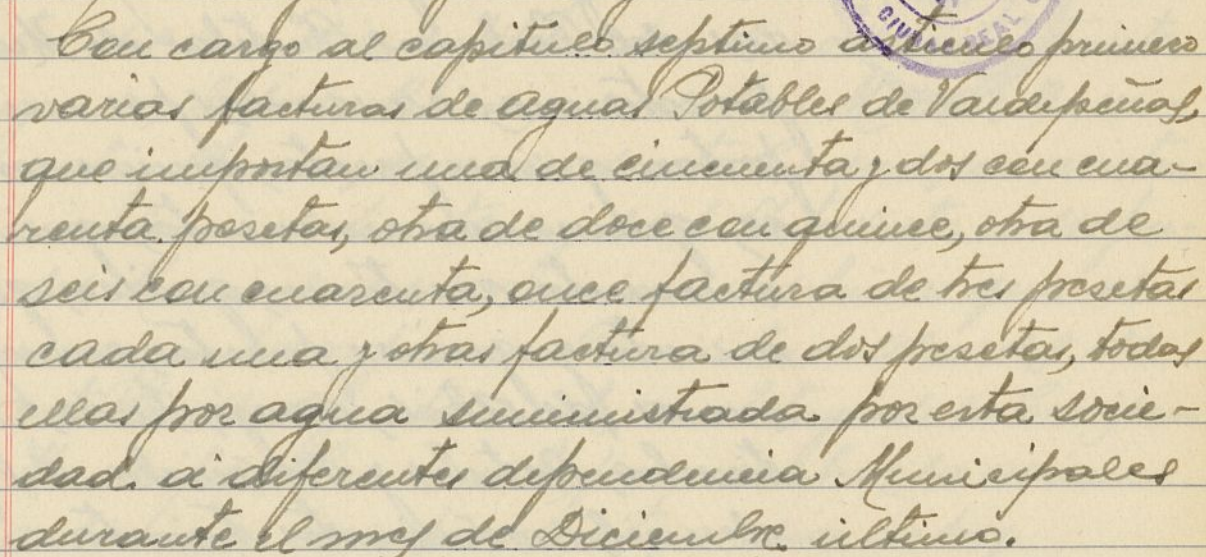 CIUDAD REAL
Con cargo al capitulo septimo articulo primero
varias facturas de aguas Potables de Valdepeñas,
que importan una de cincuenta y dos con cua-
renta pesetas, otra de doce con quince, otra de
seis con cuarenta, once factura de tres pesetas
cada una y otras factura de dos pesetas, todas
ellas por agua suministrada por esta socie-
dad a diferentes dependencia Municipales
durante el mes de Diciembre ultimo.